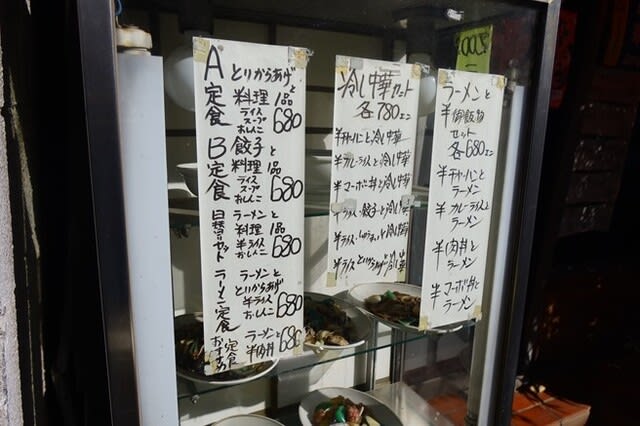 A定食
とりからあげと
料理1品
ライス
スープ
おしんこ
680
B定食
餃子と
料理1品
ライス
スープ
おしんこ
680
日替りセット
ラーメンと
料理1品
半ライス
おしんこ
680
ラーメン定食
ラーメンと
とりからあげ
半ライス
おしんこ
680
おすすめ定食
ラーメンと
半肉丼
680
冷し中華セット
各780エン
半チャーハンと冷し中華
半カレーライスと冷し中華
半マーボ丼と冷し中華
半ライス・餃子と冷し中華
半ライス・しゅうまいと冷し中華
半ライスとりからあげと冷し中華
ラーメンと
半御飯物
セット
各680エン
半チャーハンと
ラーメン
半カレーライスと
ラーメン
半肉丼と
ラーメン
半マーボ丼と
ラーメン